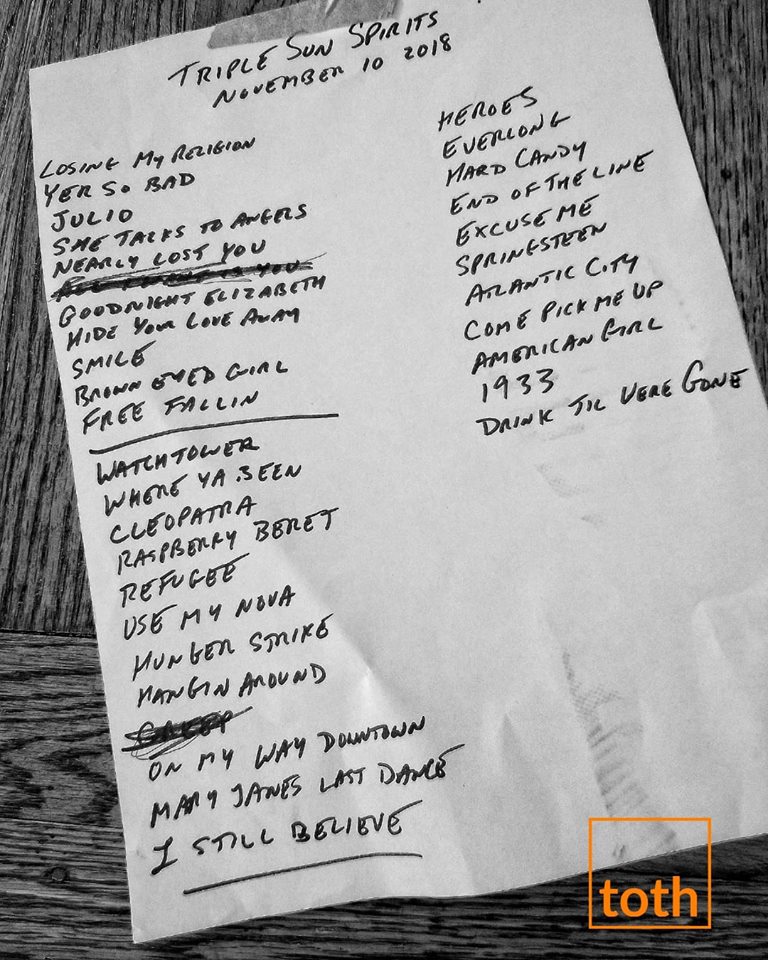 TRIPLE SUN SPIRITS
NOVEMBER 10 2018
LOSING MY RELIGION
YER SO BAD
JULIO
SHE TALKS TO ANGELS
NEARLY LOST YOU
YOU
GOODNIGHT ELIZABETH
HIDE YOUR LOVE AWAY
SMILE
BROWN EYED GIRL
FREE FALLIN
WATCHTOWER
WHERE YA BEEN
CLEOPATRA
RASPBERRY BERET
REFUGEE
USE MY NOVA
HUNGER STRIKE
HANGIN AROUND
CREEP
ON MY WAY DOWNTOWN
MARY JANES LAST DANCE
I STILL BELIEVE
HEROES
EVERLONG
HARD CANDY
END OF THE LINE
EXCUSE ME
SPRINGSTEEN
ATLANTIC CITY
COME PICK ME UP
AMERICAN GIRL
1933
DRINK TIL WERE GONE
toth